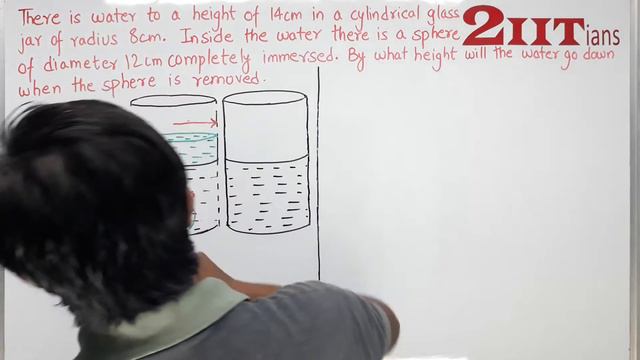 There is water to a height of 14cm in a cylindrical glass
jar of radius 8cm. Inside the water there is a sphere
of diameter 12cm completely immersed. By what height will the water go down
when the sphere is removed.
2IITians